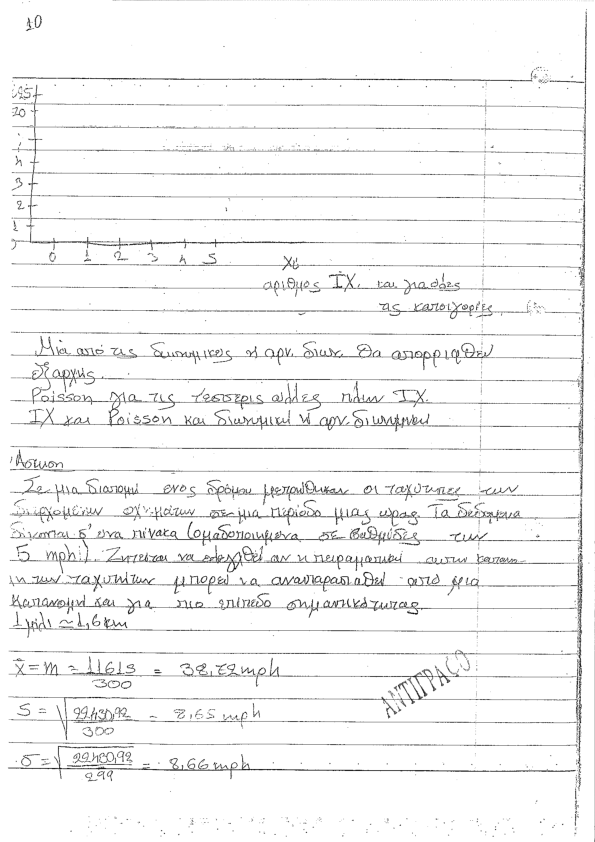 10
25
20
4
3
2
1
0
0 1 2 3 4 5
Xi
αριθμος ΙΧ. και για όλες
τις κατηγορίες
Μία από τις διωνυμικες ή αρν. διων. θα απορριφθεί
εξαρχής.
Poisson για τις τέσσερις άλλες πλην ΙΧ.
ΙΧ και Poisson και διωνυμική ή αρν. διωνυμική
Άσκηση
Σε μια διατομή ενος δρόμου μετρώθηκαν οι ταχύτητες των
διερχομένων οχημάτων σε μια περίοδο μιας ωρας. Τα δεδομένα
δίνονται σ' ένα πίνακα (ομαδοποιημένα σε βαθμίδες των
5 mph). Ζητείται να ελεγχθεί αν η πειραματική αυτη κατανο-
μη των ταχυτήτων μπορεί να αναπαρασταθεί από μια
κατανομή και για πιο επίπεδο σημαντικότητας.
1 μίλι ≃ 1,6 km
x̄ = m = 11615 / 300 = 38,72 mph
S = √(22430,92 / 300) = 8,65 mph
σ = √(22430,92 / 299) = 8,66 mph
ΑΝΤΙΓΡΑΦΟ